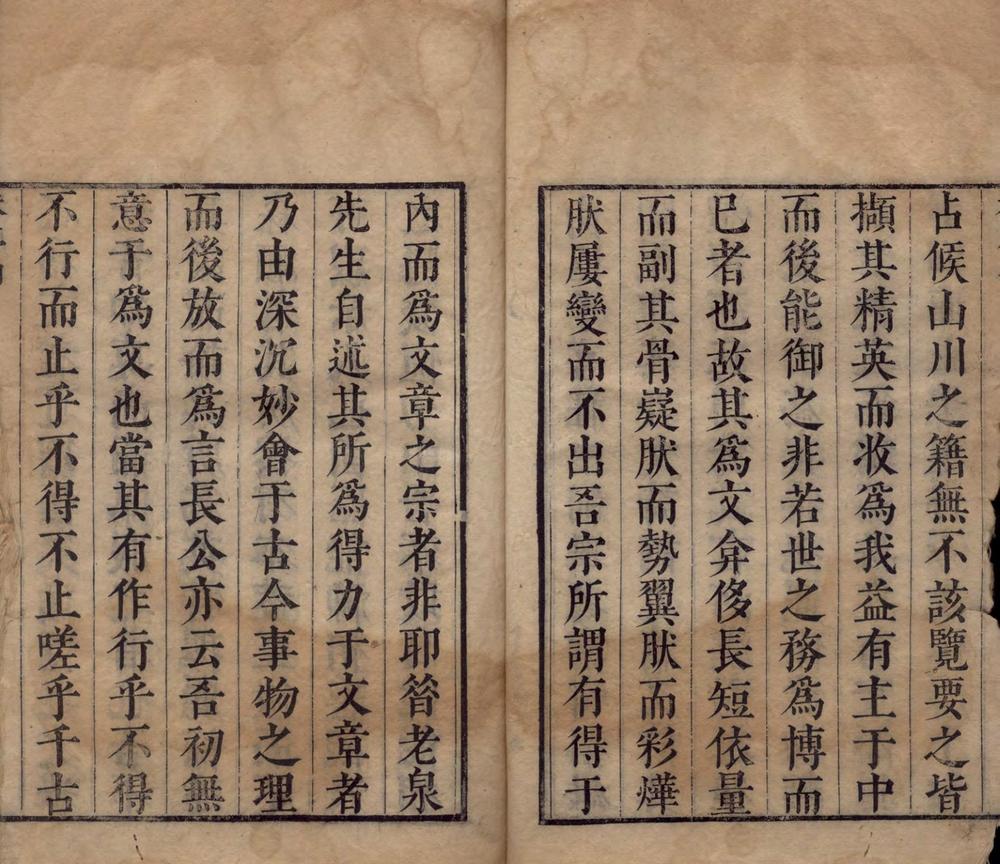 占候山川之籍無不該覽要之皆
擷其精英而收爲我益有主于中
而後能御之非若世之務爲博而
已者也故其爲文弇侈長短依量
而副其骨嶷肰而勢翼肰而彩燁
肰屢變而不出吾宗所謂有得于
內而爲文章之宗者非耶昝老泉
先生自述其所爲得力于文章者
乃由深沉妙會于古今事物之理
而後放而爲言長公亦云吾初無
意于爲文也當其有作行乎不得
不行而止乎不得不止嗟乎千古